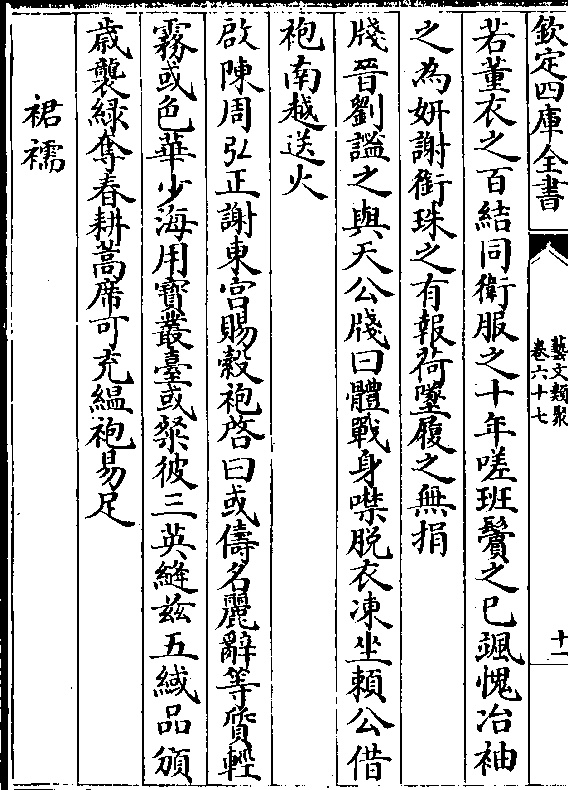 欽定四庫全書
藝文類聚
卷六十七
十一
若董衣之百結同衛服之十年嗟班鬢之已颯愧冶袖
之為妍謝銜珠之有報荷墜履之無捐
牋晉劉謐之與天公牋曰體戰身噤脫衣凍坐賴公借
袍南越送火
啟陳周弘正謝東宮賜縠袍啓曰或儔名麗辭等質輕
霧或色華少海用寳叢臺或粲彼三英縫兹五緎品頒
歲襲緑奪春耕蒿席可充緼袍易足
裙襦